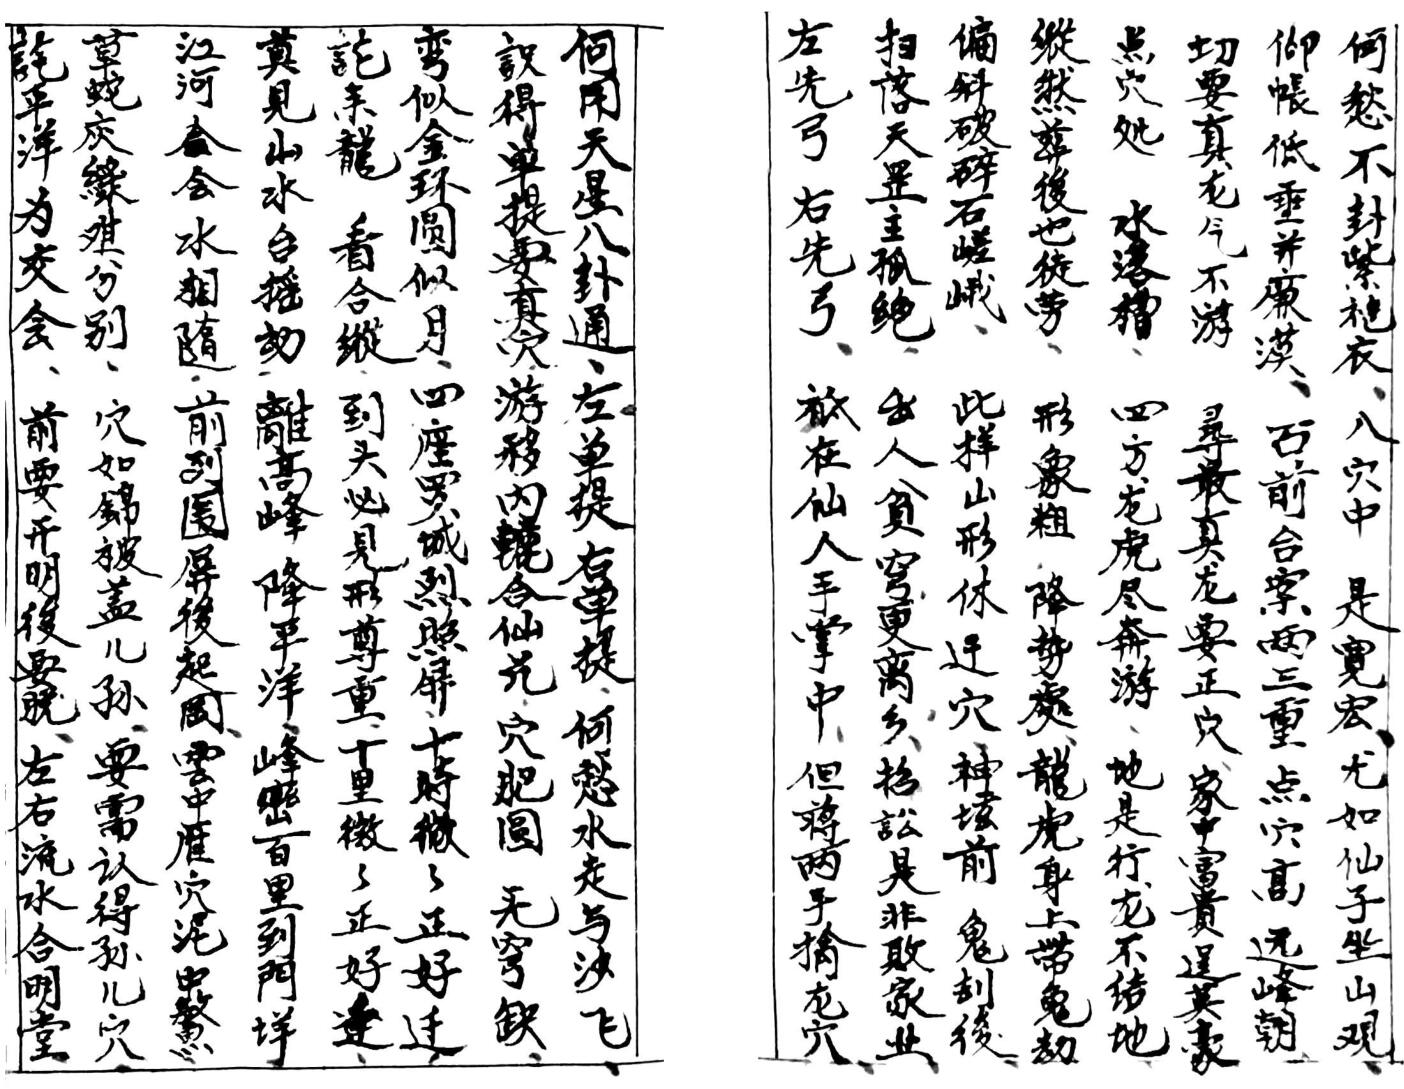 何愁不封紫袍衣、八穴中 是寬宏尤如仙子坐山观
仰帳低垂并廉漠、石前台案两三重点穴高远峰朝
切要真龙气不游 尋最真龙要正穴家中富貴逞英豪
点穴处 水落槽、四方龙虎尽奔游、地是行龙不结地
縱然葬後也徒劳、形象粗 降势 龍虎身上帶鬼劫
偏斜破碎石嵯峨、此样山形休迁穴神坟前 鬼刮後
扫落天罡主孤绝 出人負穷更离乡 訟是非敗家业
左先弓 右先弓、祗在仙人手掌中 但蒋两手擒龙穴
何用天星八卦通、左单提右单提、何愁水走与沙飞
訣得单提要真穴游移内 合仙 穴肥圆 无穷缺
弯似金环圆似月、四座罗城烈照屏、十時微々正好迁
託来龍 看合縱、到头必见形尊重、十里微々正好逢
莫見山水台摇动 離高峰 降平洋 峰巒百里到門垟
江河 会水相隨、前列圍屏後起圆、雲中雁穴泥中鰲
草蛇灰線难分别、穴如錦被盖儿孙、要需认得孙儿穴
託平洋为交会、前要开明後要 、左右流水合明堂